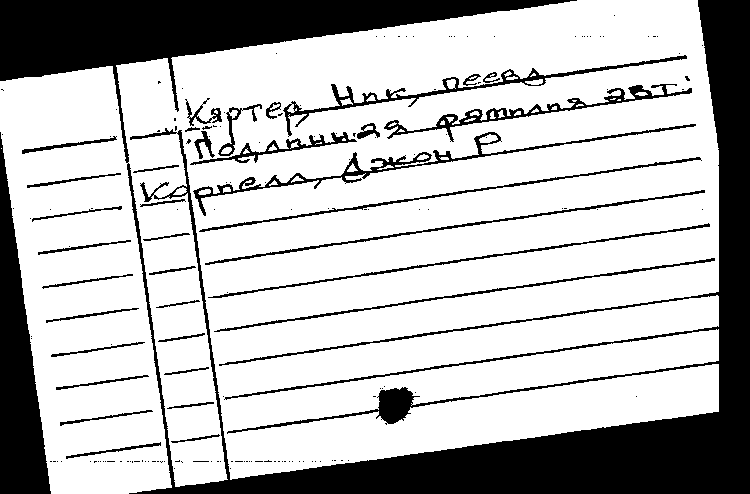 Картер, Ник, псевд
Подлинная фамилия авт:
Корпелл, Джон Р